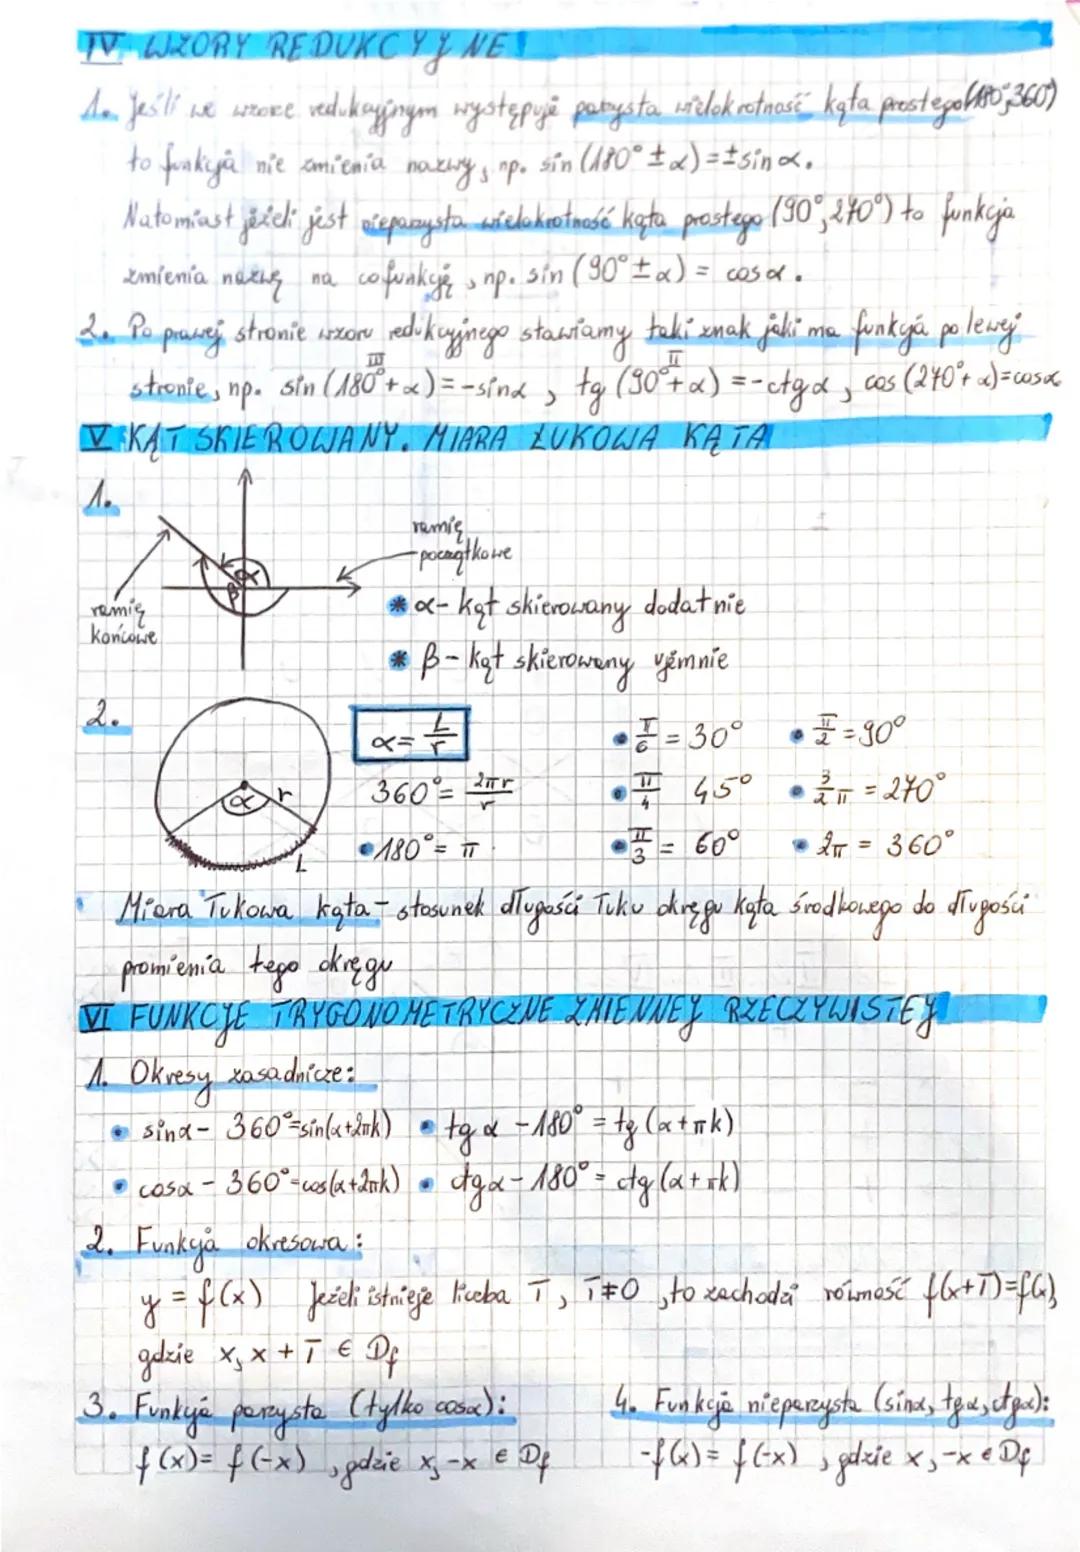 IV WZORY REDUKCYJNE
1. Jeśli we wzorze redukcyjnym występuje parzysta wielokrotność kąta prostego (180°, 360°)
to funkcja nie zmienia nazwy, np. sin (180° ± α) = ± sin α.
Natomiast jeżeli jest nieparzysta wielokrotność kąta prostego (90°, 270°) to funkcja
zmienia nazwę na cofunkcję, np. sin (90° ± α) = cos α.
2. Po prawej stronie wzoru redukcyjnego stawiamy taki znak jaki ma funkcja po lewej
III II
stronie, np. sin (180° + α) = - sin α, tg (90° + α) = - ctg α, cos (270° + α) = cos α
V KĄT SKIEROWANY. MIARA ŁUKOWA KĄTA
1.
ramię
początkowe
α
β
ramię
końcowe
* α - kąt skierowany dodatnie
* β - kąt skierowany ujemnie
2.
α = L/r
• π/6 = 30° • π/2 = 90°
α r
360° = 2πr/r
• π/4 45° • 3/2 π = 270°
L
• 180° = π
• π/3 = 60° • 2π = 360°
Miara łukowa kąta - stosunek długości łuku okręgu kąta środkowego do długości
promienia tego okręgu
VI FUNKCJE TRYGONOMETRYCZNE ZMIENNEJ RZECZYWISTEJ
1. Okresy zasadnicze:
• sin α - 360° = sin(α + 2πk) • tg α - 180° = tg (α + πk)
• cos α - 360° = cos(α + 2πk) • ctg α - 180° = ctg (α + πk)
2. Funkcja okresowa:
y = f(x) Jeżeli istnieje liczba T, T ≠ 0, to zachodzi równość f(x+T) = f(x),
gdzie x, x + T ∈ Df
3. Funkcja parzysta (tylko cos α): 4. Funkcja nieparzysta (sin α, tg α, ctg α):
f(x) = f(-x), gdzie x, -x ∈ Df -f(x) = f(-x), gdzie x, -x ∈ Df